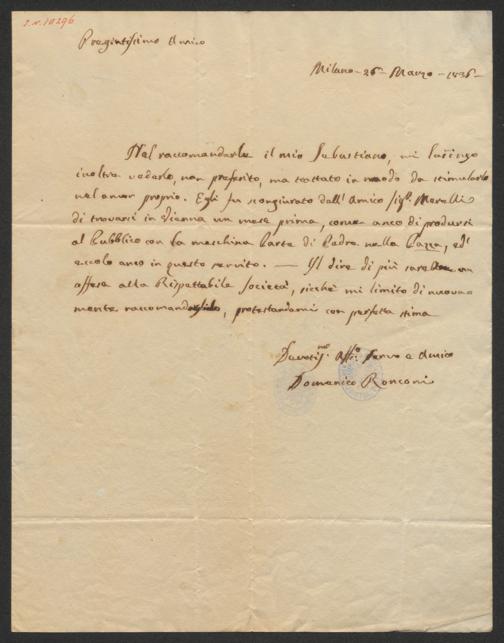 I.N. 10296
Pregiatissimo Amico
Milano - 26 - Marzo - 1836 -
Nel raccomandarle il mio Sebastiano, mi lusingo
inoltre vederlo, non preferito, ma trattato in modo da stimularlo
nel amor proprio. Egli fu scongiurato dall' Amico Sigr. Merelli
di trovarsi in Vienna un mese prima, come anco di prodursi
al Pubblico con la meschina Parte di Padre nella Gazza, ed
eccolo anco in questo servito. — Il dire di più sarebbe un
offesa alla Rispettabile Società, sicchè mi limito di nuova-
mente raccomandarglielo, protestandomi con perfetta stima
Devotismo Affo. Servo e Amico
Domenico Ronconi